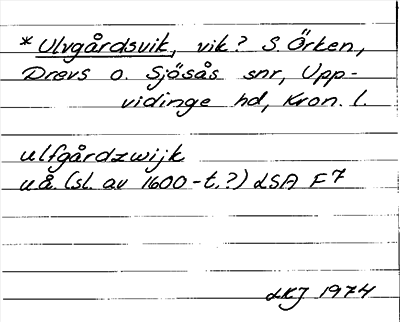 * Ulvgårdsvik, vik? S. Örken,
Drevs o. Sjösås snr, Upp-
vidinge hd, Kron. l.
ulfgårdzwijk
u.å. (sl. av 1600-t.?) LSA F7
LKJ 1974